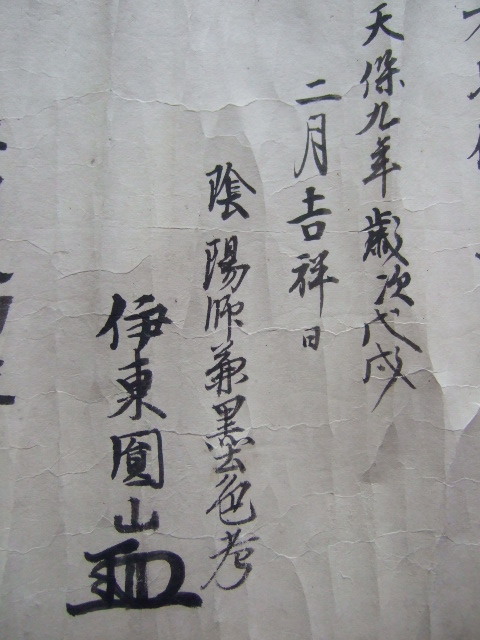 天保九年歳次戊戌
二月吉祥日
陰陽師兼墨色考
伊東圓山